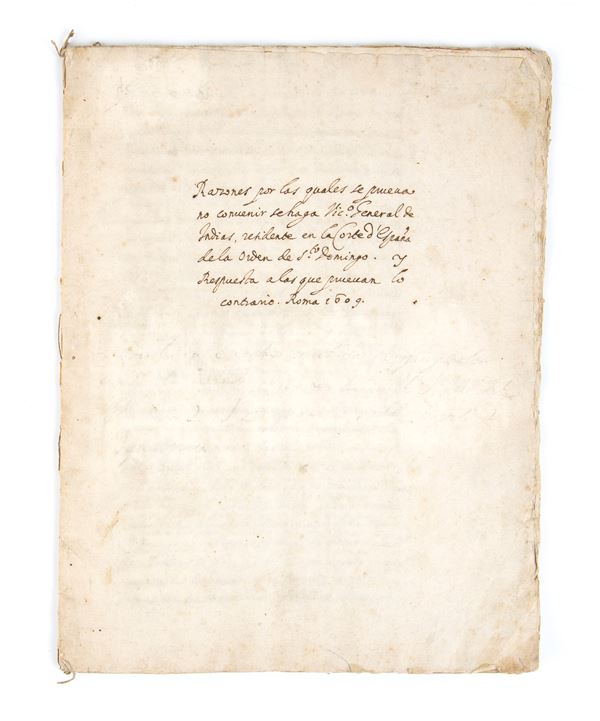 Razones por las quales se prueua
no convenir se haga Vic.º General de
Indias, residente en la Corte d España
de la Orden de S.to Domingo. y
Respuesta a las que prueuan lo
contrario. Roma 1609.